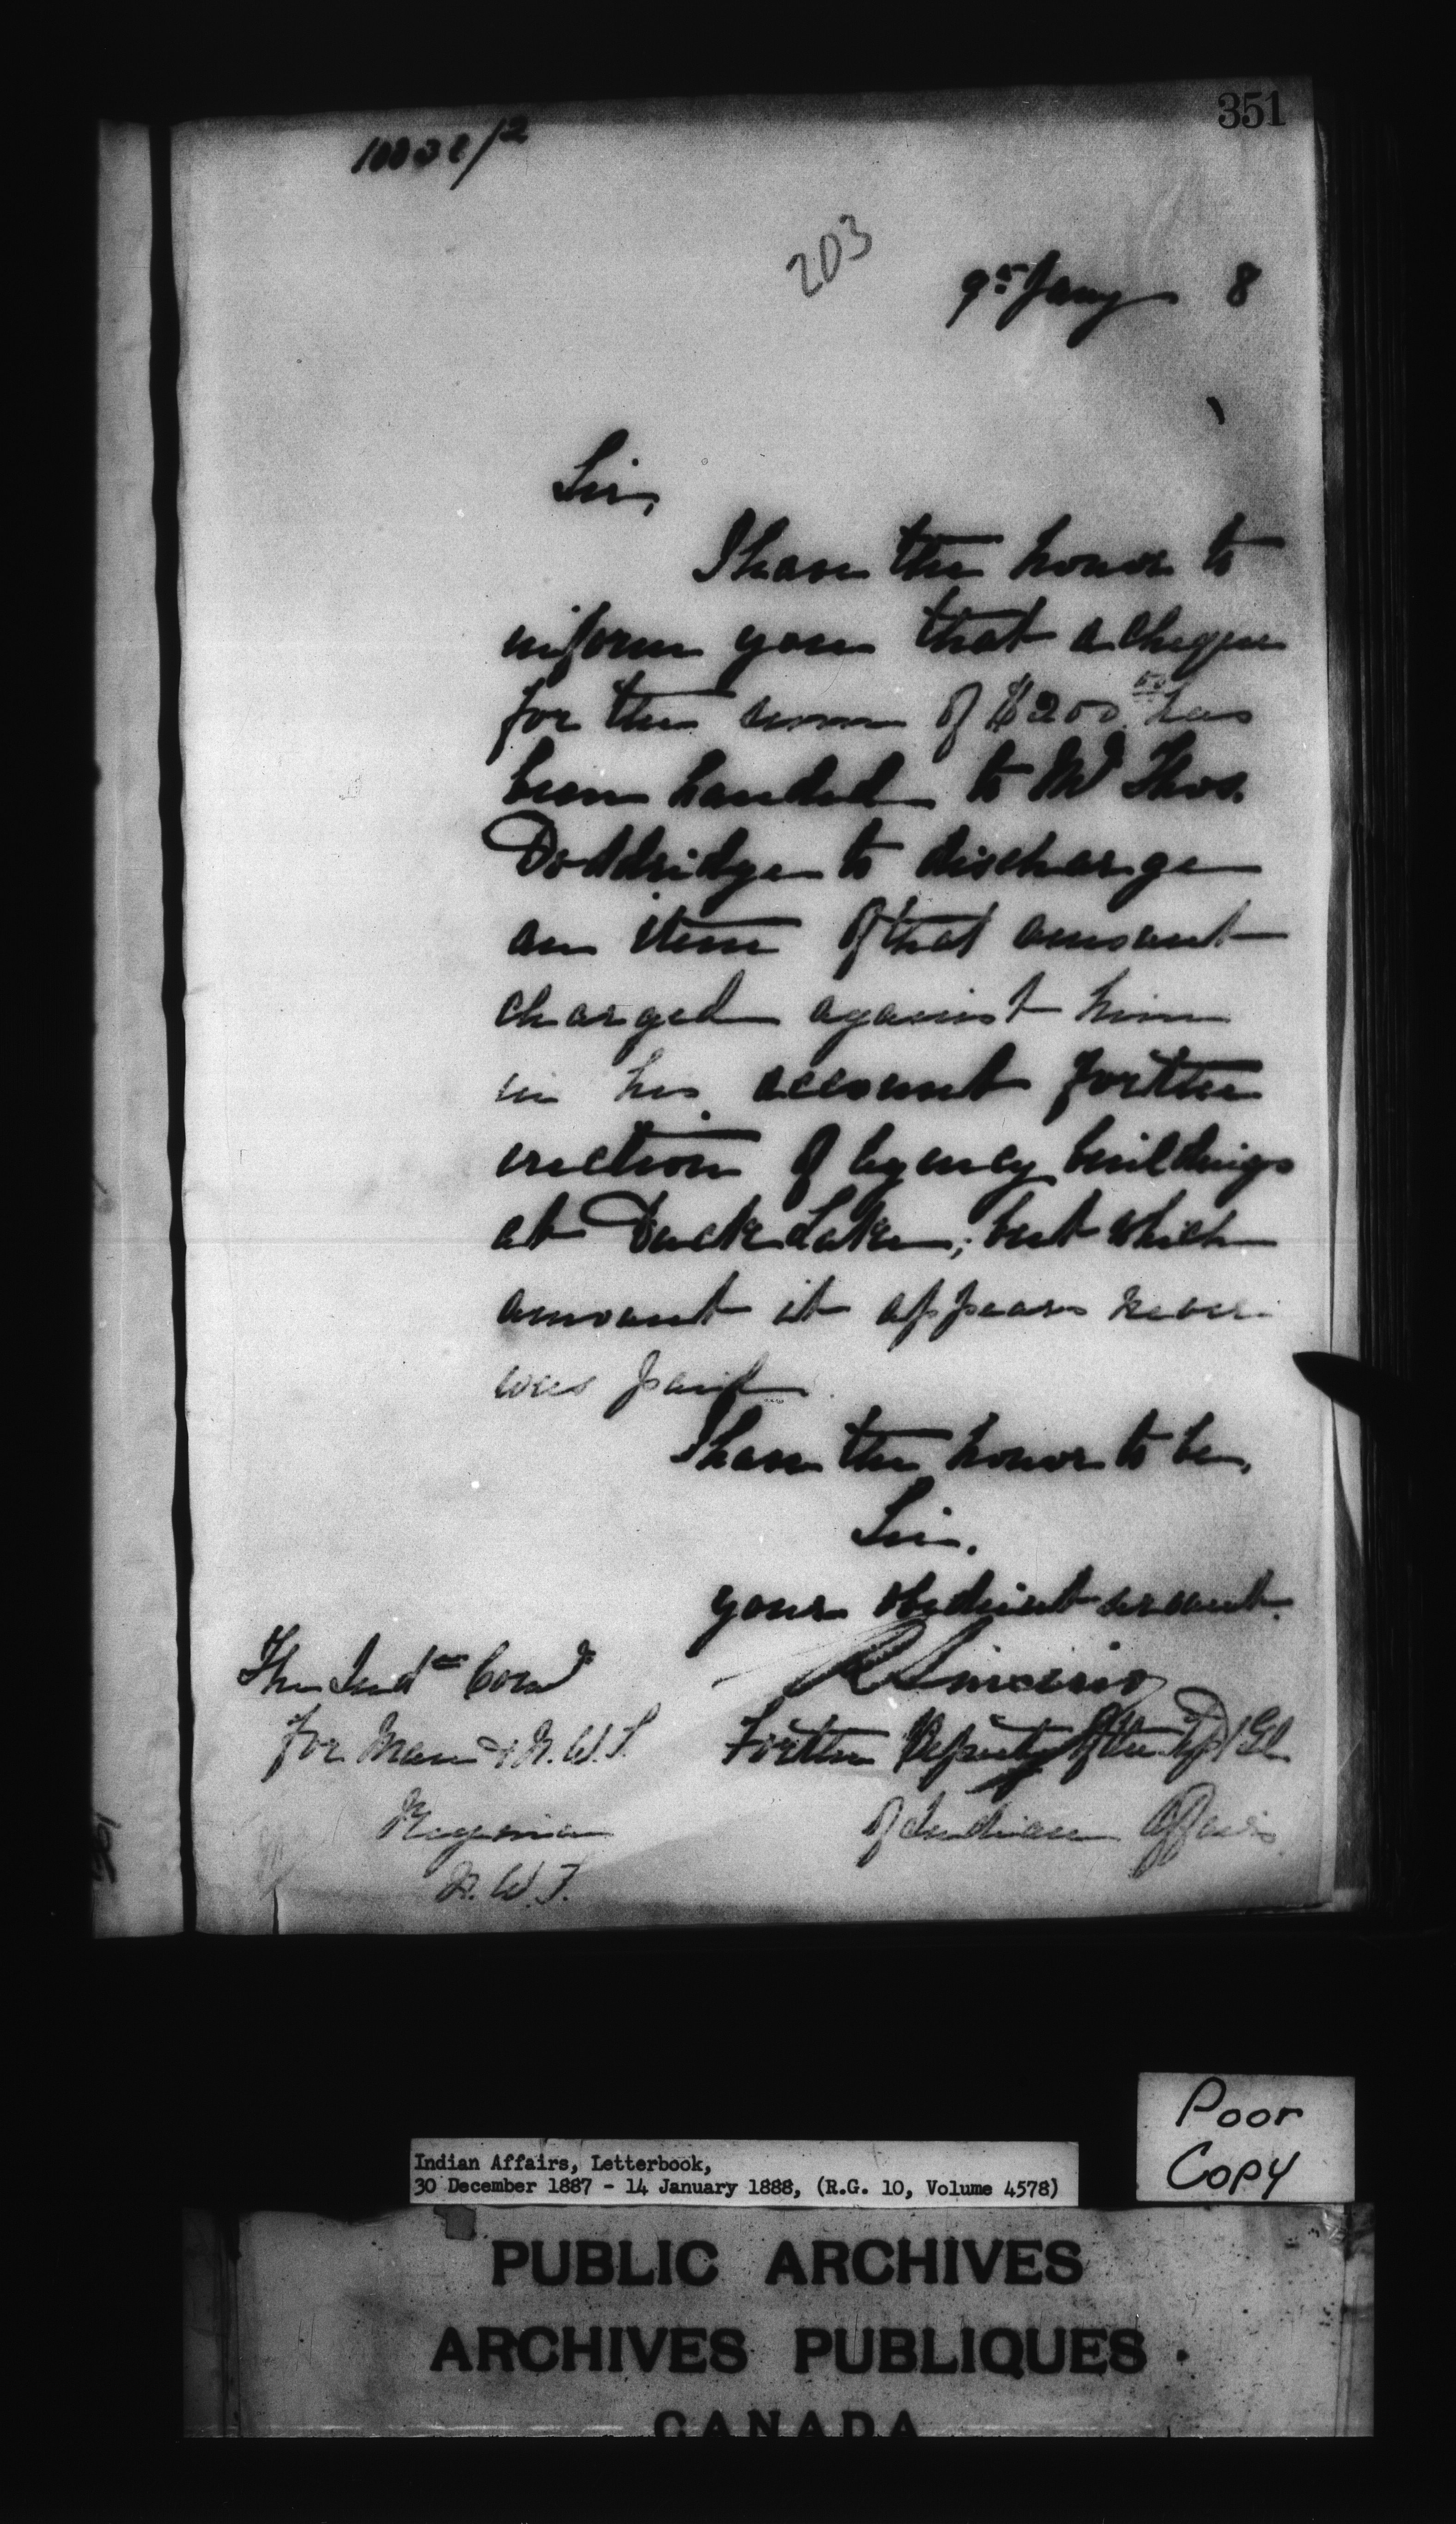 351
203
9th Jany 8
Sir,
I have the honor to
inform you that a cheque
for the sum of $200.00 has
been handed to Mr Thos.
Doddridge to discharge
an item of that amount
charged against him
in his account for the
erection of Agency buildings
at Duck Lake, but which
amount it appears never
was paid.
I have the honor to be,
Sir.
your obedient servant.
R Sinclair
The Indn Comr
for Man & N.W.T.
For the Deputy of the Supt Gl
Regina
of Indian Affairs
N.W.T.
Poor
Copy
Indian Affairs, Letterbook,
30 December 1887 - 14 January 1888, (R.G. 10, Volume 4578)
PUBLIC ARCHIVES
ARCHIVES PUBLIQUES
CANADA